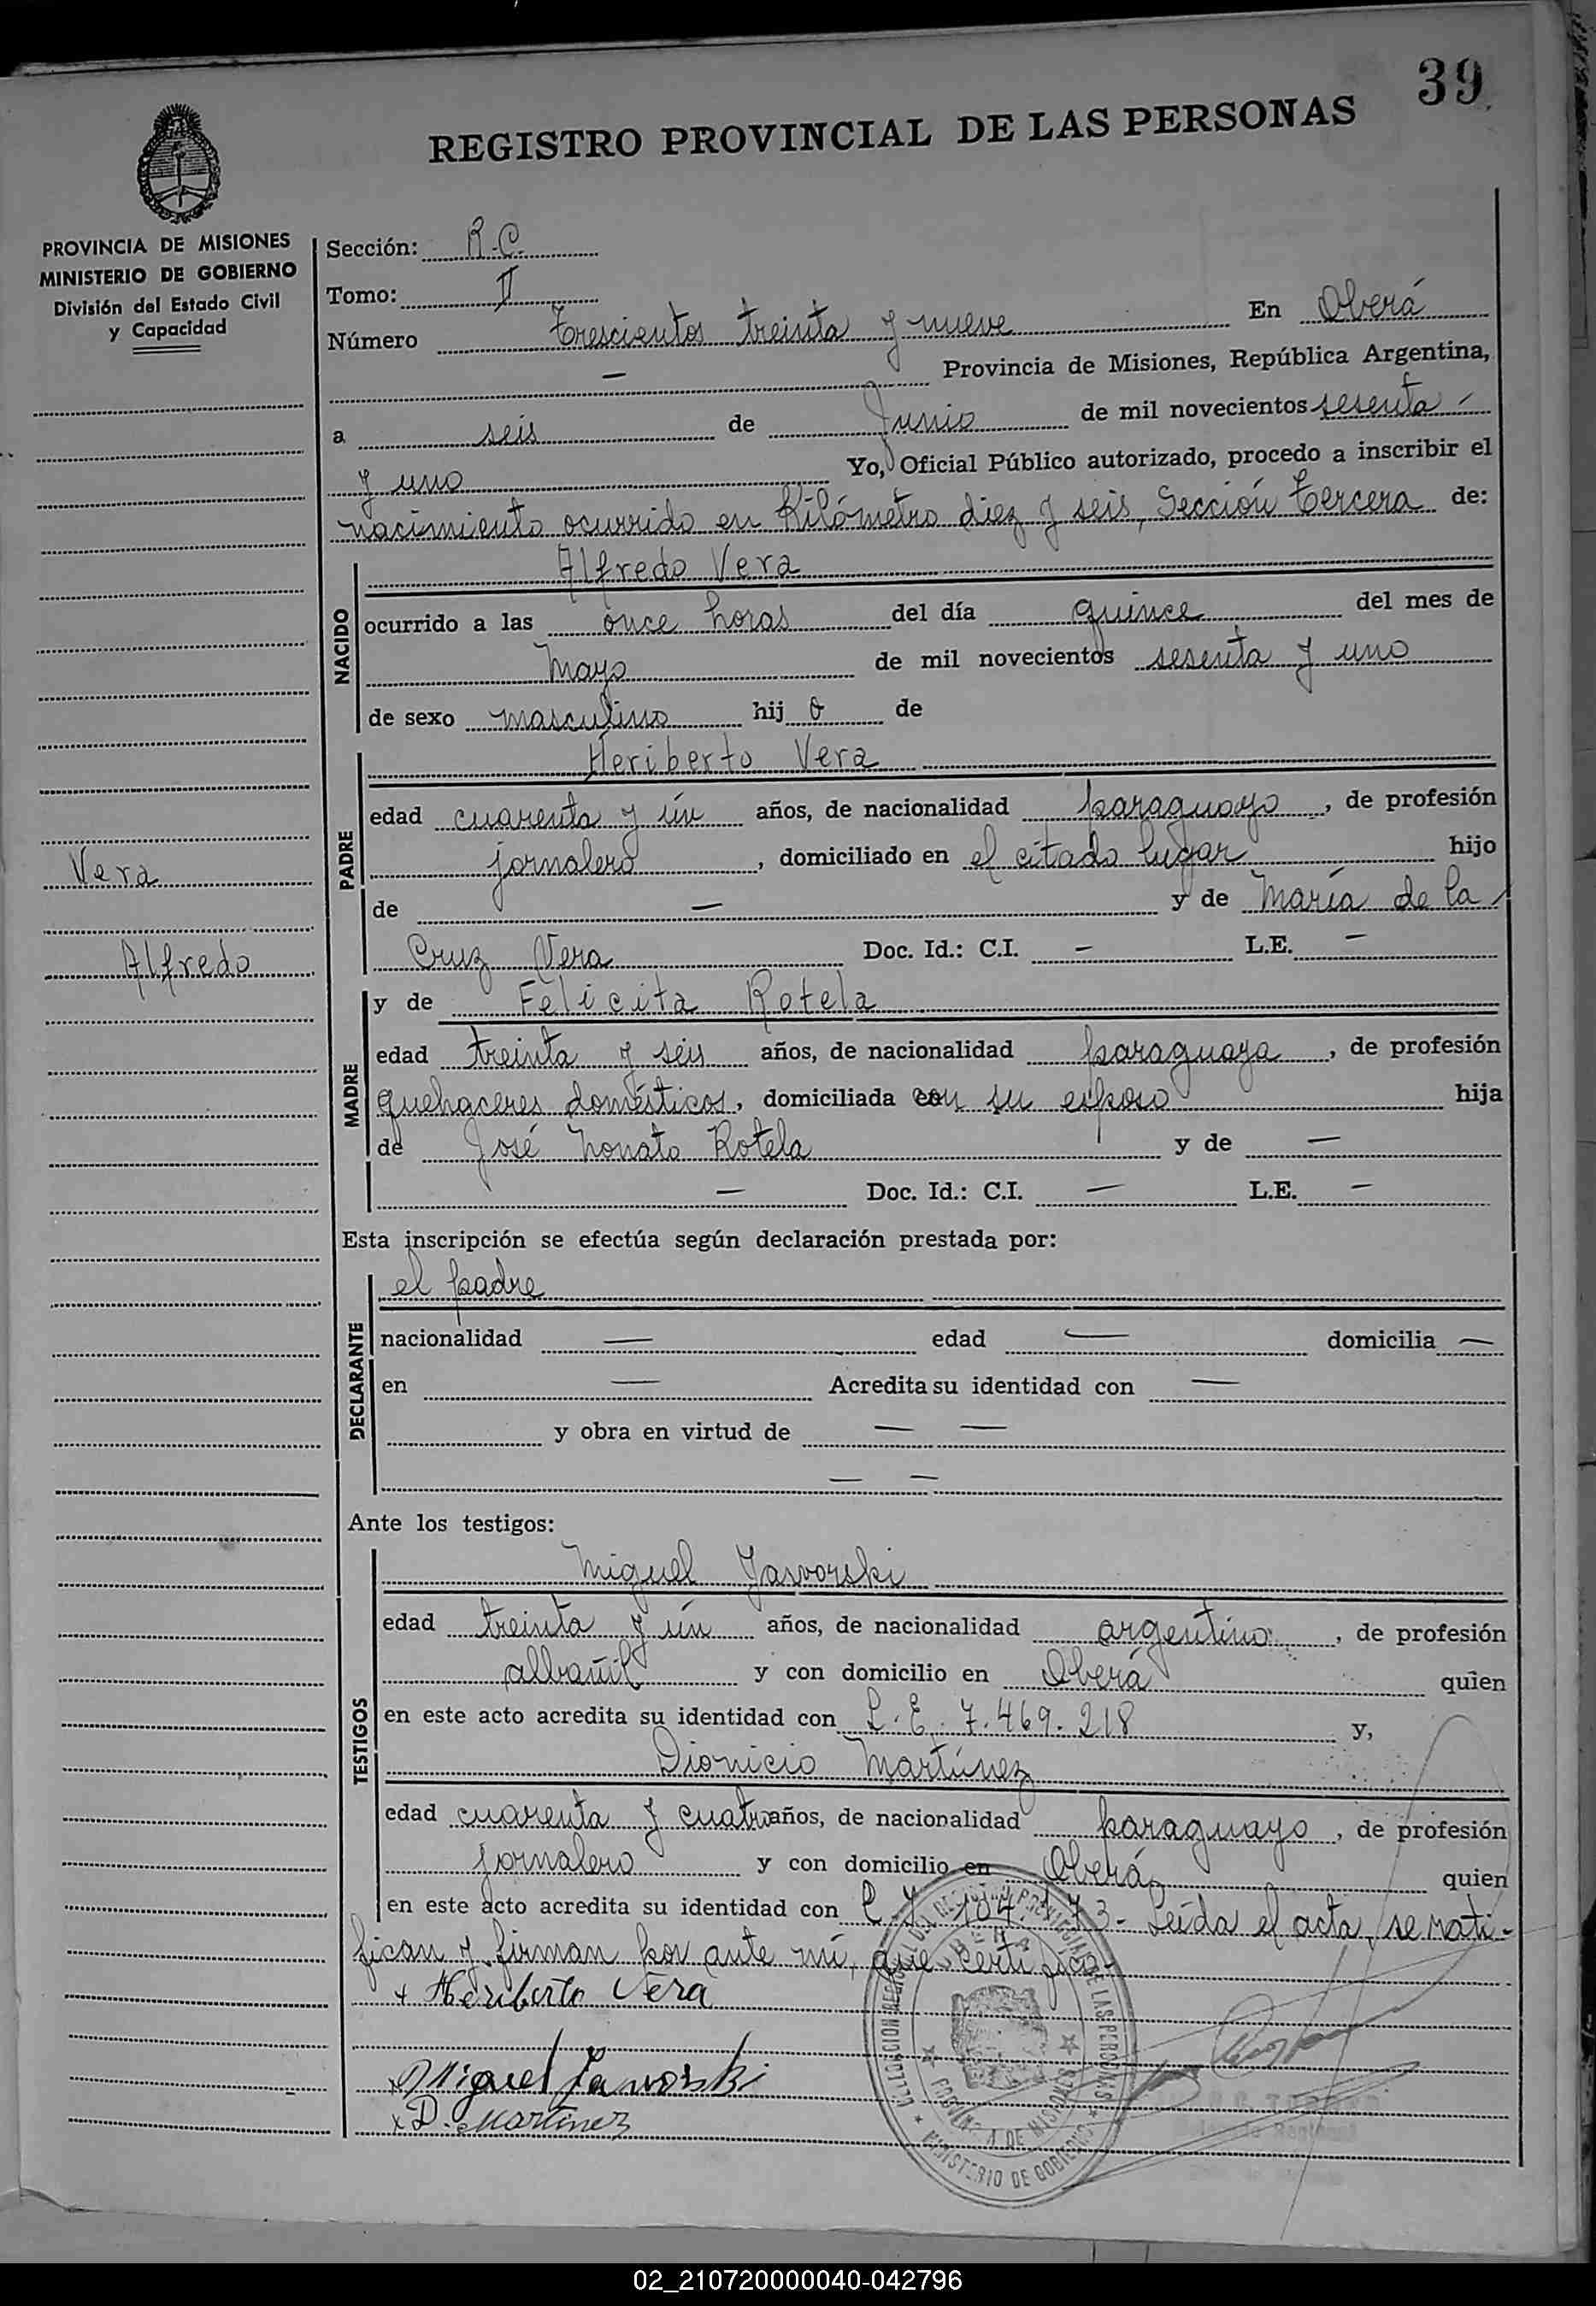 39
REGISTRO PROVINCIAL DE LAS PERSONAS
PROVINCIA DE MISIONES
MINISTERIO DE GOBIERNO
División del Estado Civil
y Capacidad
Vera
Alfredo
Sección: R.C.
Tomo: II
Número Trescientos treinta y nueve En Oberá
— Provincia de Misiones, República Argentina,
a seis de Junio de mil novecientos sesenta
y uno Yo, Oficial Público autorizado, procedo a inscribir el
nacimiento ocurrido en Kilómetro diez y seis, Sección Tercera de:
NACIDO
Alfredo Vera
ocurrido a las once horas del día quince del mes de
Mayo de mil novecientos sesenta y uno
de sexo masculino hij o de
PADRE
Heriberto Vera
edad cuarenta y ún años, de nacionalidad paraguayo, de profesión
jornalero, domiciliado en el citado lugar hijo
de — y de María de la
Cruz Vera Doc. Id.: C.I. — L.E. —
MADRE
y de Felicita Rotela
edad treinta y seis años, de nacionalidad paraguaya, de profesión
quehaceres domésticos, domiciliada con su esposo hija
de José Nonato Rotela y de —
— Doc. Id.: C.I. — L.E. —
Esta inscripción se efectúa según declaración prestada por:
DECLARANTE
el padre
nacionalidad — edad — domicilia —
en — Acredita su identidad con —
y obra en virtud de — —
— —
Ante los testigos:
TESTIGOS
Miguel Jaworski
edad treinta y ún años, de nacionalidad argentino, de profesión
albañil y con domicilio en Oberá quien
en este acto acredita su identidad con L.E. 7.469.218 y,
Dionicio Martínez
edad cuarenta y cuatro años, de nacionalidad paraguayo, de profesión
jornalero y con domicilio en Oberá quien
en este acto acredita su identidad con Leída el acta, se rati-
fican y firman por ante mí, que certifico.-
x Heriberto Vera
x Miguel Jaworski
x D. Martinez
PROVINCIA DE MISIONES
MINISTERIO DE GOBIERNO
02_210720000040-042796